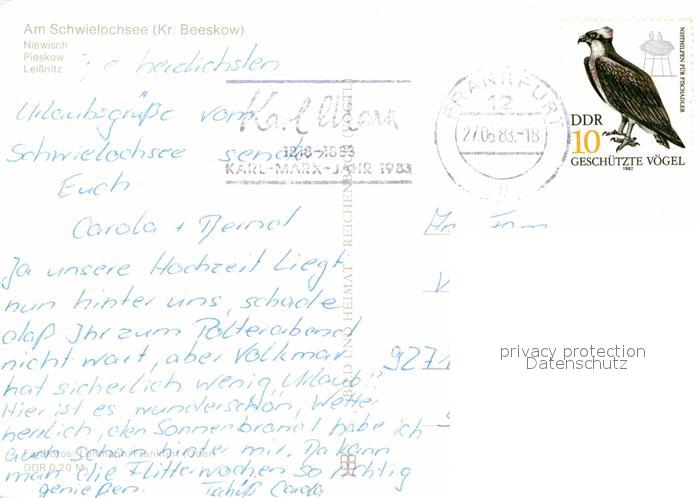 Am Schwielochsee (Kr. Beeskow)
Niewisch
Pieskow
Leißnitz
herzlichsten
Urlaubsgrüße vom
Schwielochsee senden
Euch
Carola + Bernd
Ja unsere Hochzeit liegt
nun hinter uns, schade
daß Ihr zum Polterabend
nicht wart, aber Volkmar
hat sicherlich wenig „Urlaub".
Hier ist es wunderschön, Wetter
herrlich, den Sonnenbrand habe ich
auch schon hinter mir. Da kann
man die Flitterwochen so richtig
genießen. Tschüß Carola
DDR 0,20 M
Karl Marx
1818-1883
KARL-MARX-JAHR 1983
BILD UND HEIMAT REICHENBACH
FRANKFURT
12
27.06.83.-18
NISTHILFEN FÜR FISCHADLER
DDR
10
GESCHÜTZTE VÖGEL
1982
927
privacy protection
Datenschutz